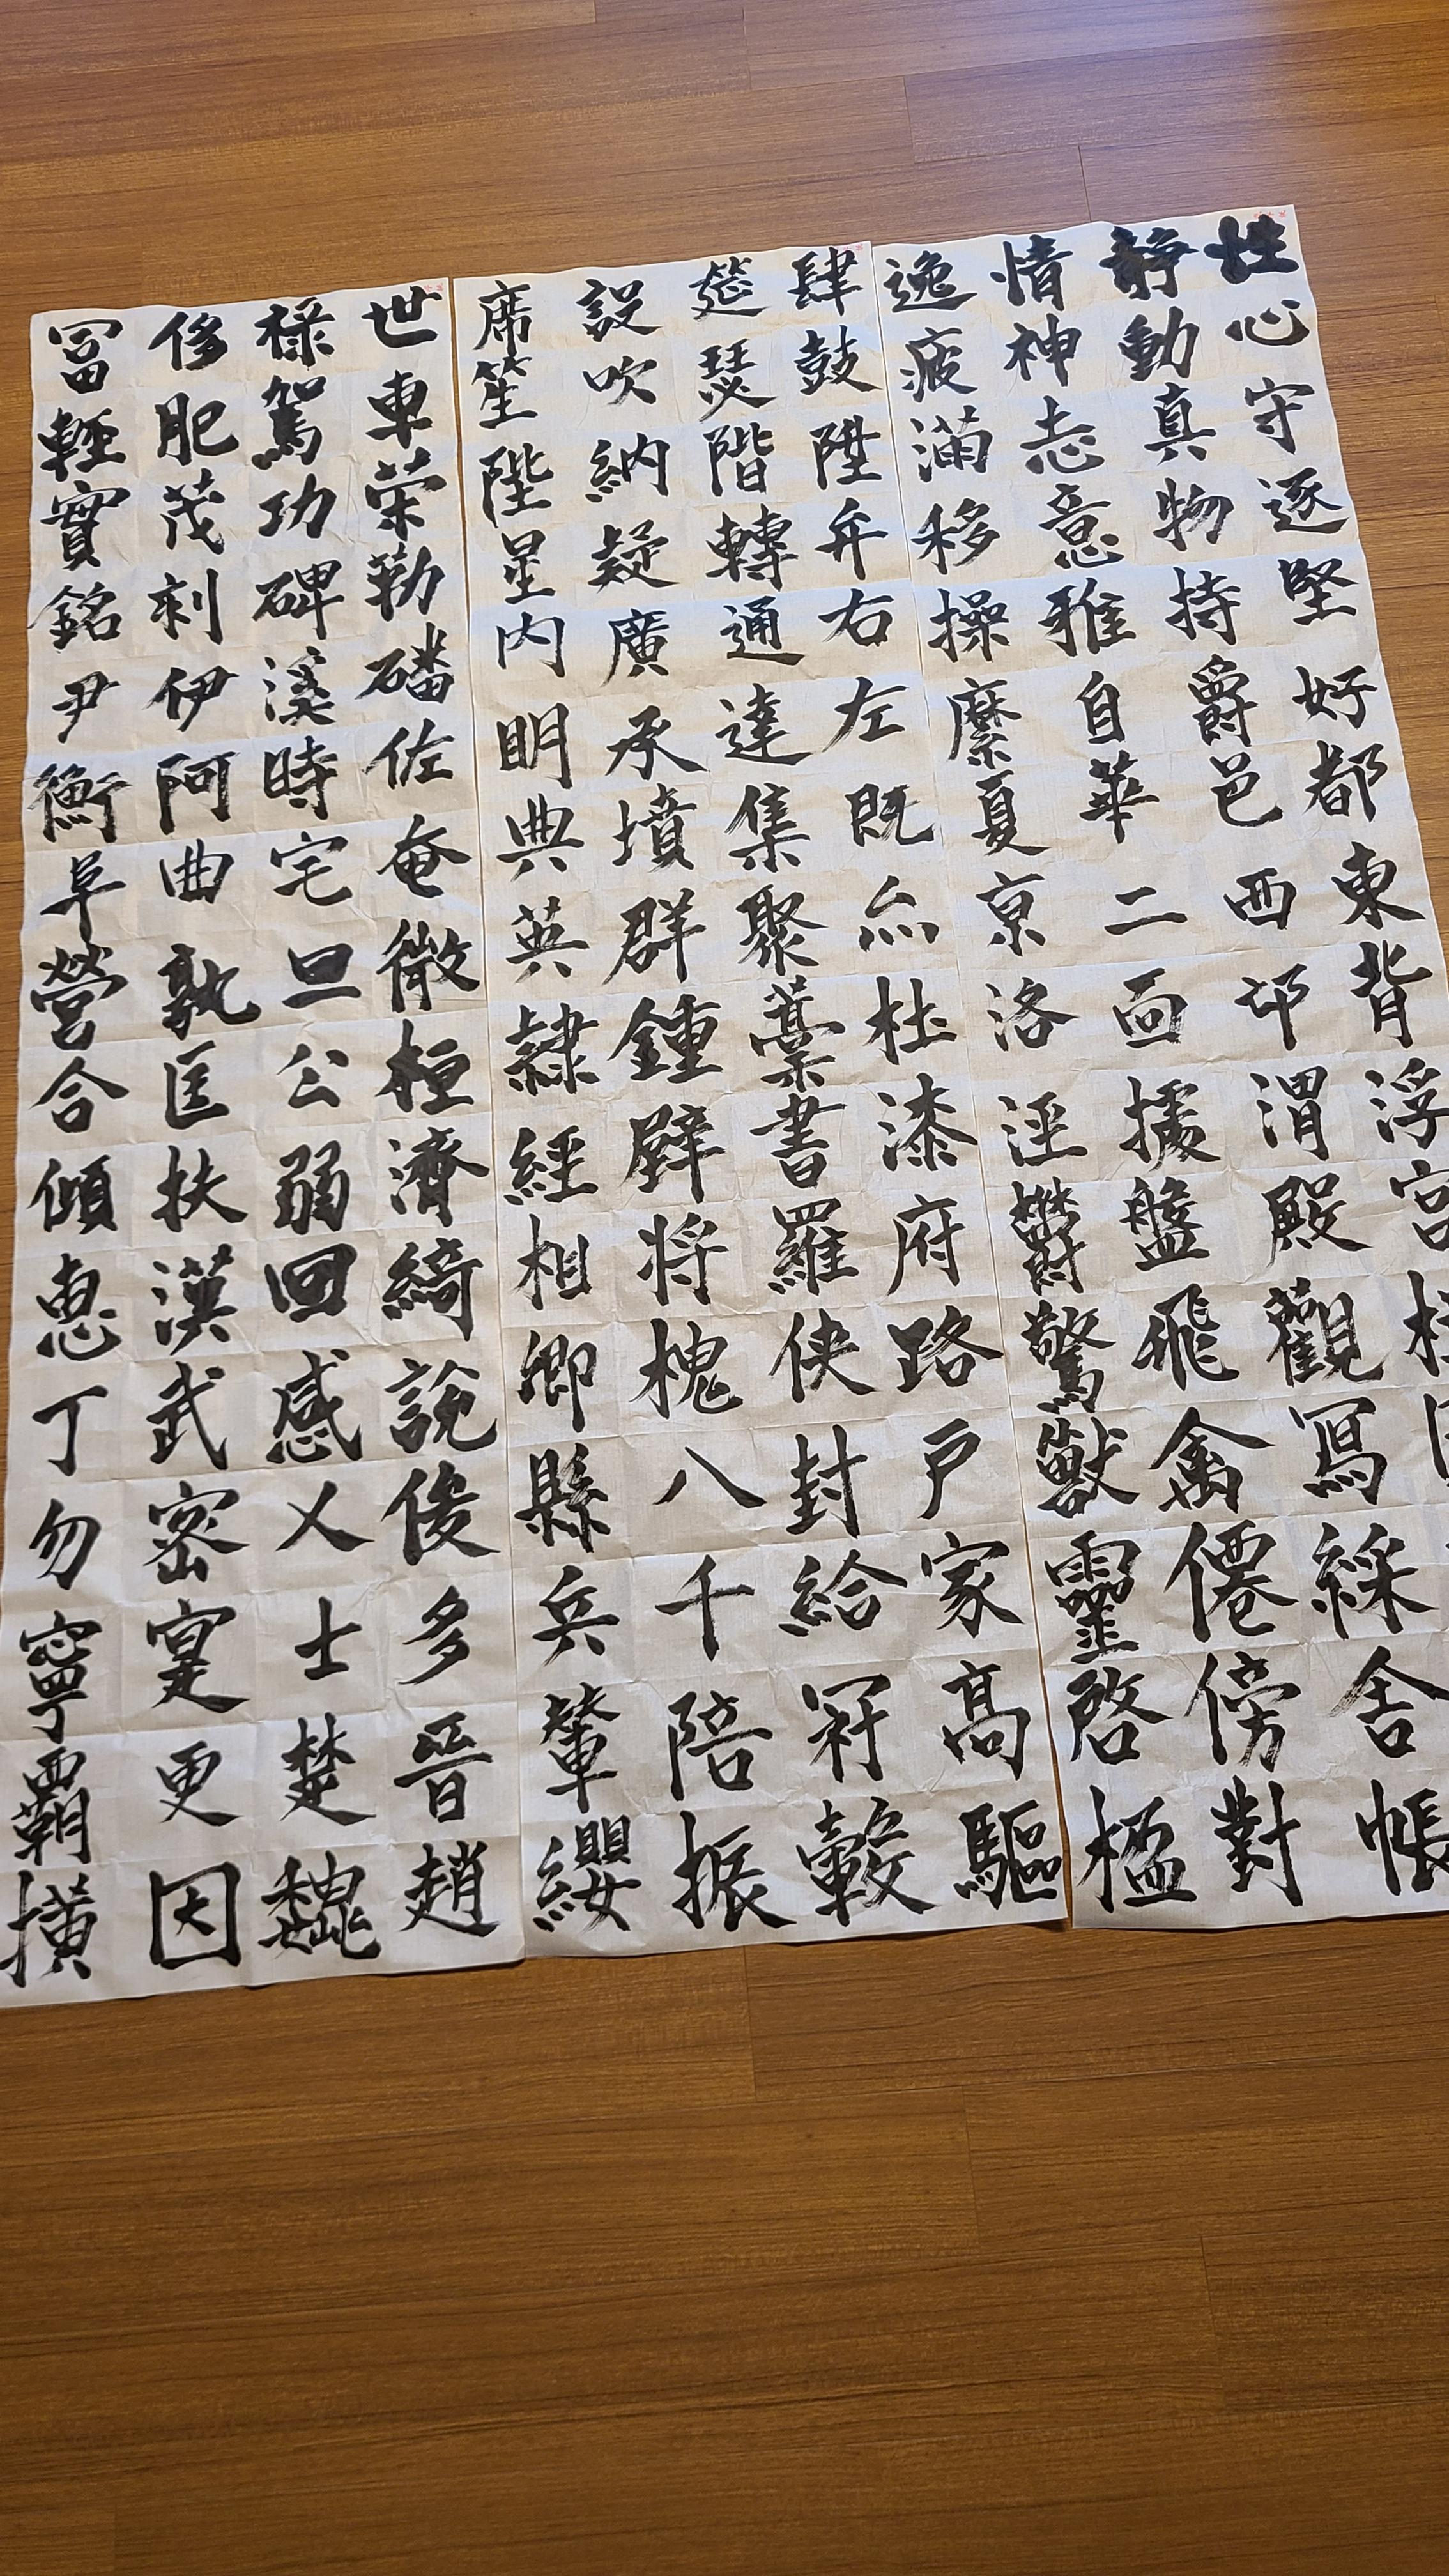 性靜情逸
心動神疲
守真志滿
逐物意移
堅持雅操
好爵自縻
都邑華夏
東西二京
背邙面洛
浮渭據涇
宮殿盤鬱
觀飛驚
寫禽獸
綵僊靈
舍傍啓
帳對楹
肆筵設席
鼓瑟吹笙
陞階納陛
弁轉疑星
右通廣内
左達承明
既集墳典
亦聚群英
杜稾鍾隸
漆書壁經
府羅将相
路俠槐卿
戶封八縣
家給千兵
高冠陪輦
驅轂振纓
世祿侈冨
車駕肥輕
策功茂實
勒碑刻銘
磻溪伊尹
佐時阿衡
奄宅曲阜
微旦孰營
桓公匡合
濟弱扶傾
綺回漢惠
說感武丁
俊乂密勿
多士寔寧
晉楚更霸
趙魏因橫